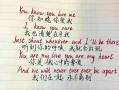 You know you love me
你知道你爱我
I know you care
我也清楚你在意
Just shout whenever and I'll be there
听到你的呼唤，我就会出现
You are my love you are my heart
你是我心中的挚爱
And we will never ever ever be apart
我们在一起 永不